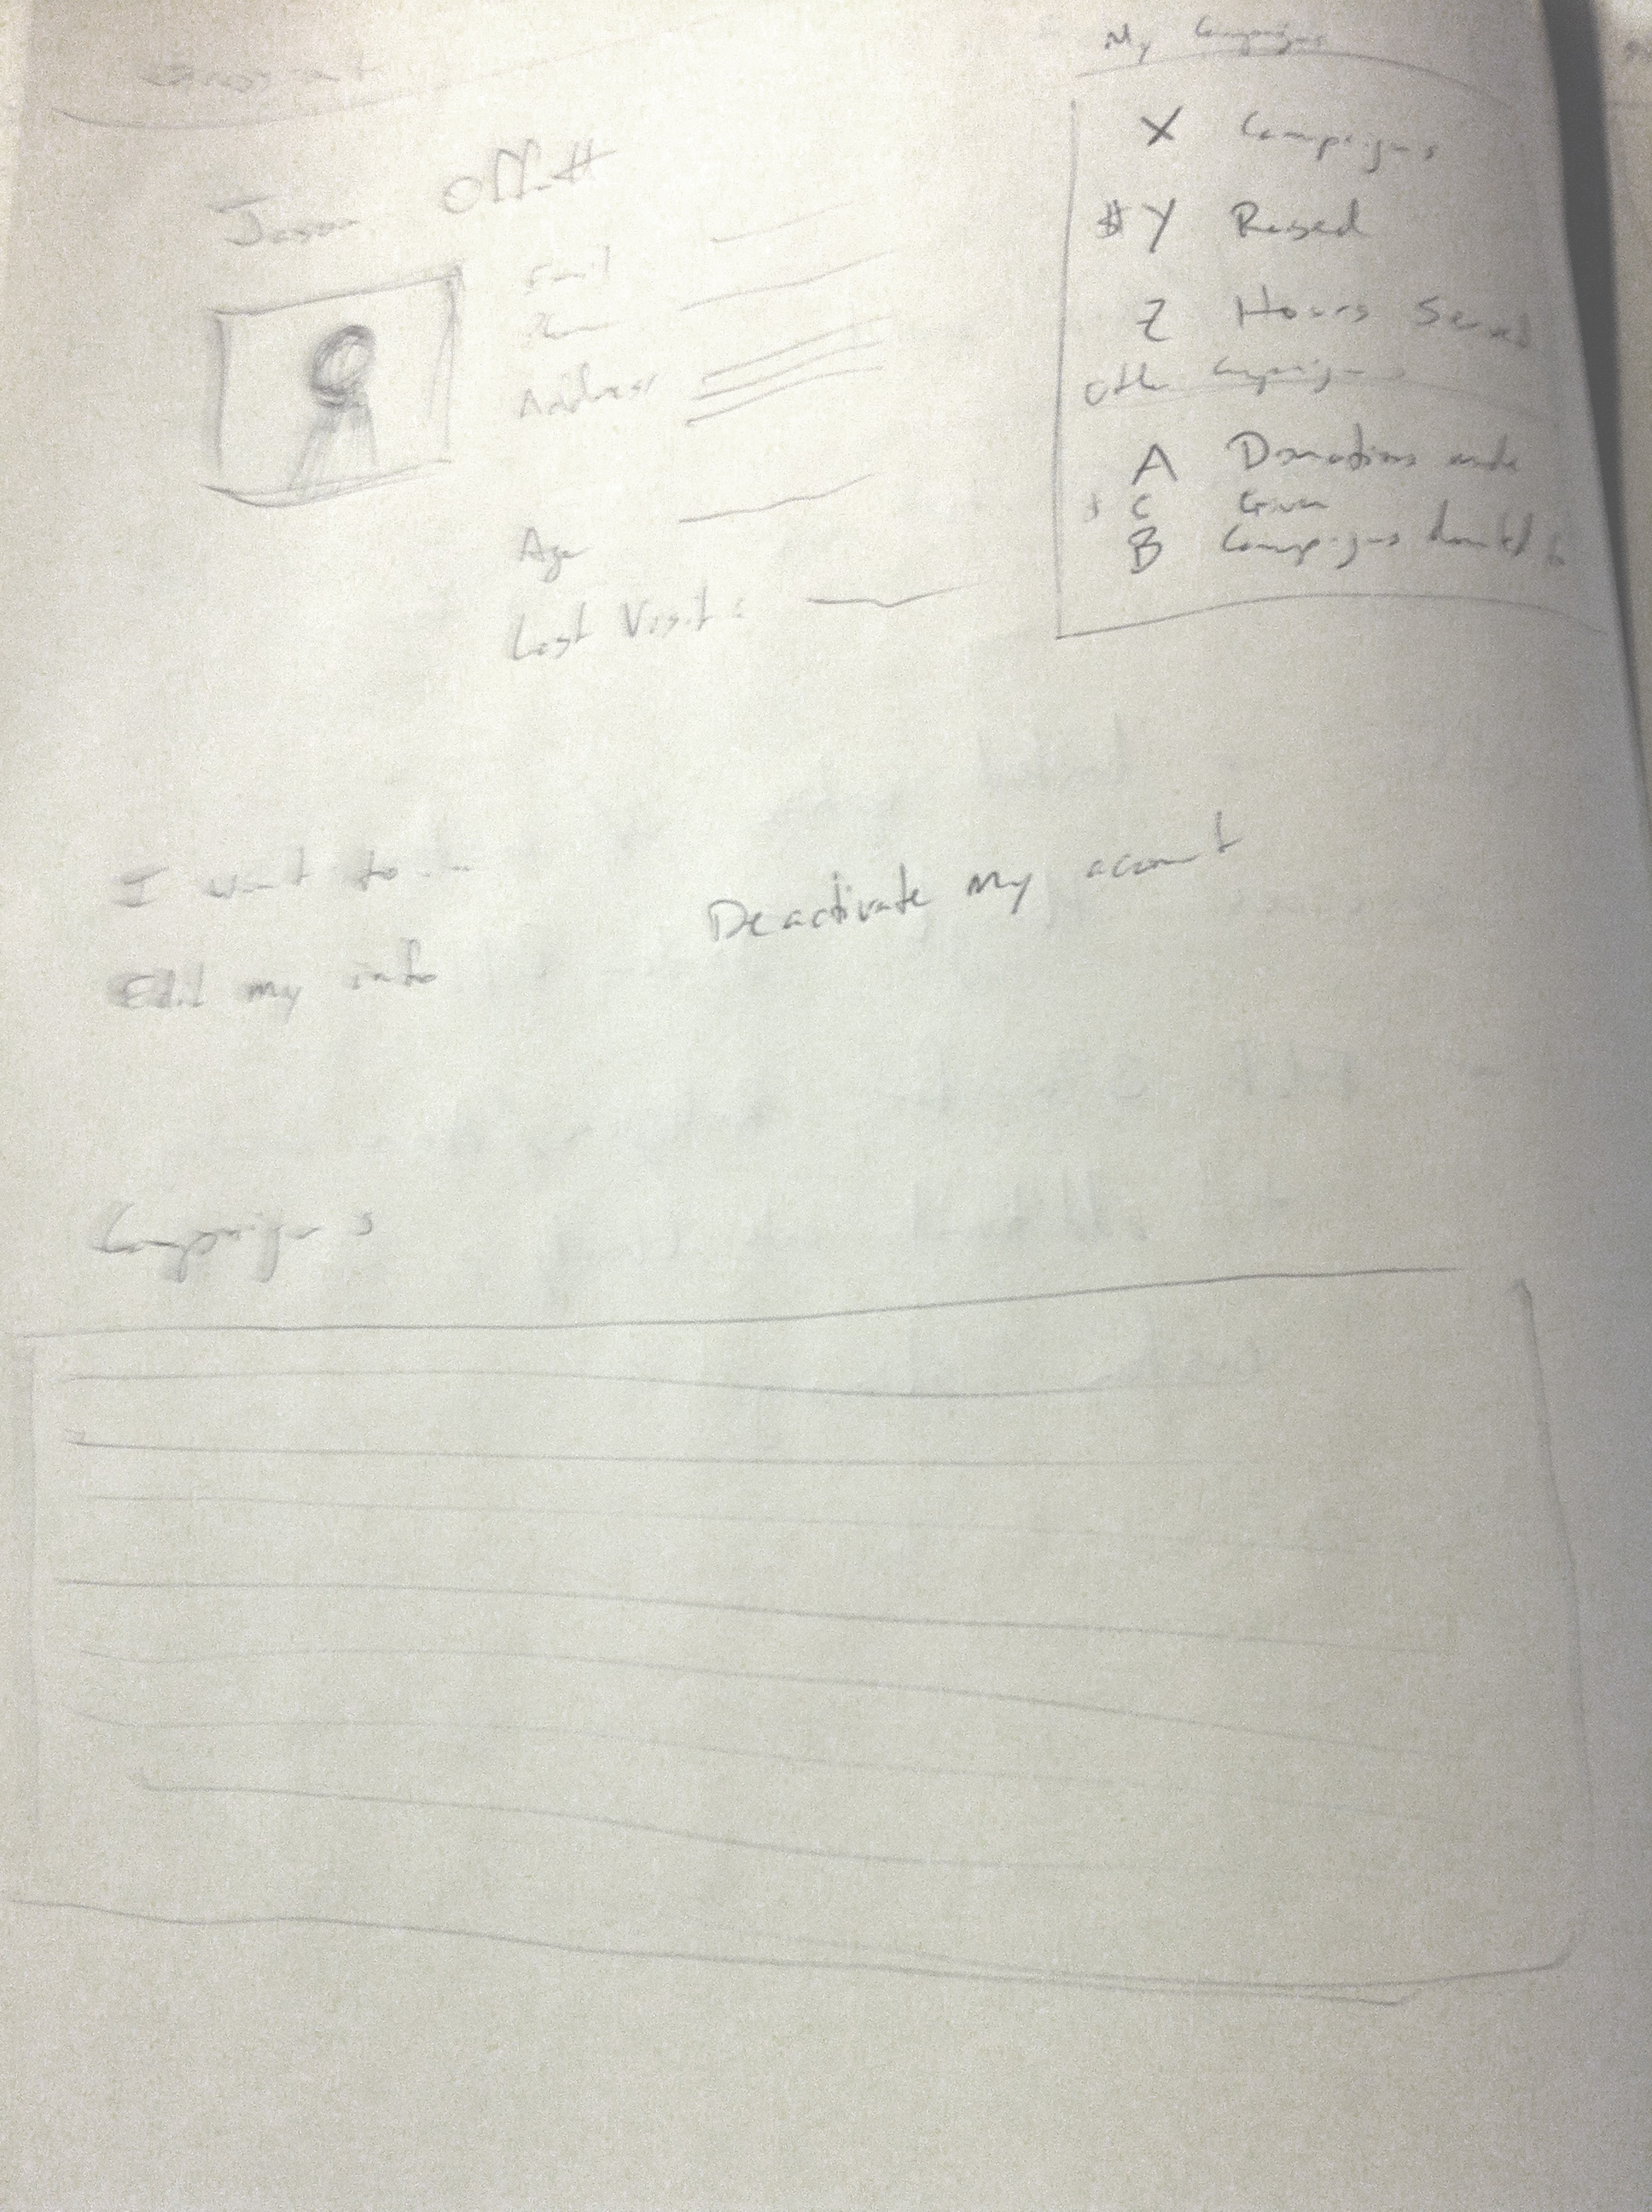 Jason Offutt
Email
Phone
Address
Age
Last Visit:
My Campaigns
X Campaigns
$Y Raised
Z Hours Served
Other Campaigns
A Donations made
$ C Given
B Campaigns donated to
I want to...
Edit my info
Deactivate my account
Campaigns